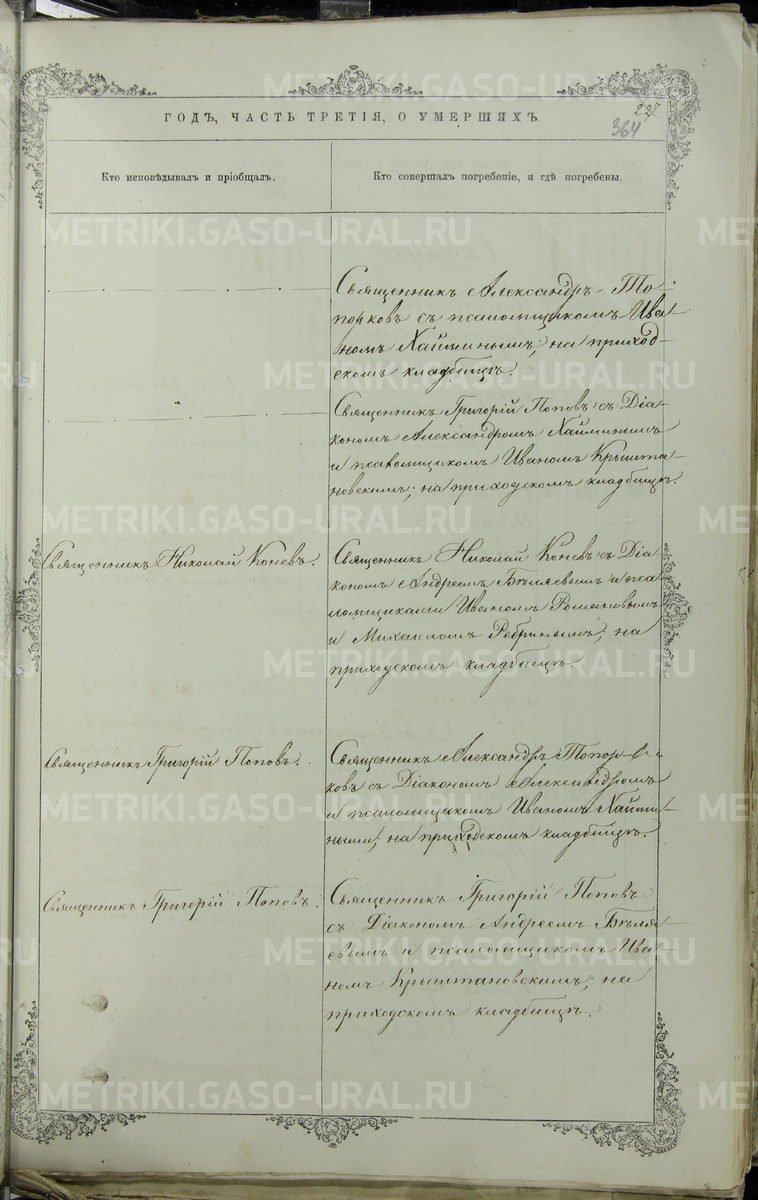 227
ГОДЪ, ЧАСТЬ ТРЕТІЯ, О УМЕРШИХЪ
364
Кто исповѣдывалъ и пріобщалъ.
Кто совершалъ погребеніе, и гдѣ погребены.
Священникъ Александръ То-
порковъ съ псаломщикомъ Ива-
номъ Хайминымъ; на приход-
скомъ кладбищѣ.
Священникъ Григорій Поповъ съ Діа-
кономъ Александромъ Хайминымъ
и псаломщикомъ Иваномъ Крышта-
новскимъ; на приходскомъ кладбищѣ.
Священникъ Николай Коневъ.
Священникъ Николай Коневъ съ Діа-
кономъ Андреемъ Бѣляевымъ и пса-
ломщиками Иваномъ Романовымъ
и Михаиломъ Ребринымъ; на
приходскомъ кладбищѣ.
Священникъ Григорій Поповъ.
Священникъ Александръ Топор-
ковъ съ Діакономъ Александромъ
и псаломщикомъ Иваномъ Хайми-
ными; на приходскомъ кладбищѣ.
Священникъ Григорій Поповъ.
Священникъ Григорій Поповъ
съ Діакономъ Андреемъ Бѣля-
евымъ и псаломщикомъ Ива-
номъ Крыштановскимъ; на
приходскомъ кладбищѣ.
METRIKI.GASO-URAL.RU